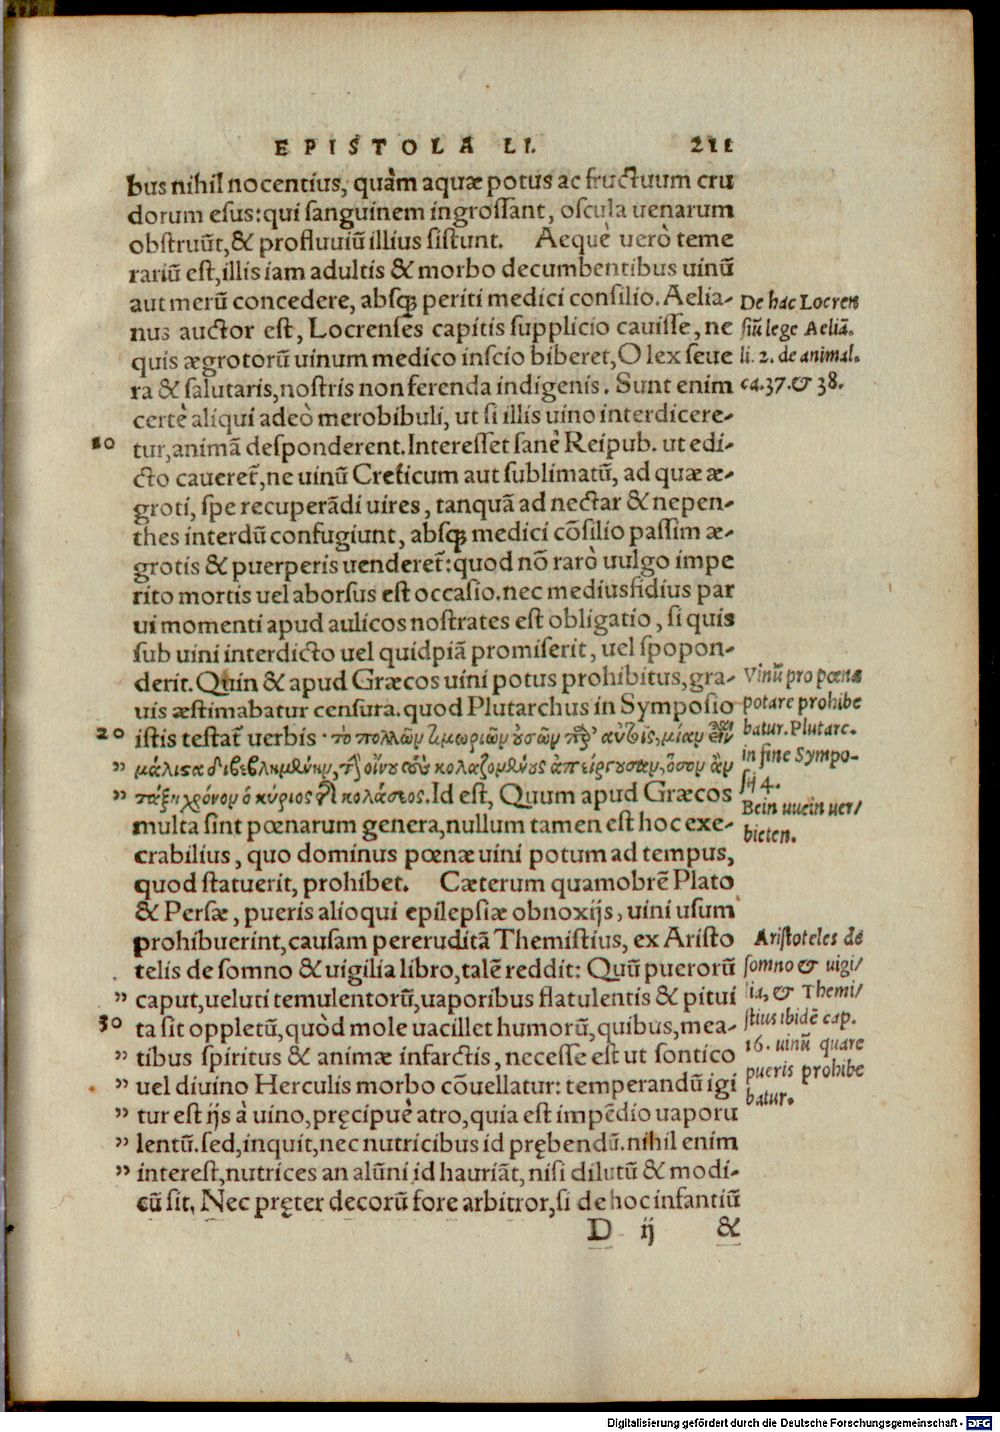 EPISTOLA LI. 211
bus nihil nocentius, quàm aquæ potus ac fructuum cru
dorum esus: qui sanguinem ingrossant, oscula uenarum
obstruũt, & profluuiũ illius sistunt. Aequè uerò teme
rariũ est, illis iam adultis & morbo decumbentibus uinũ
aut merũ concedere, absq; periti medici consilio. Aelia-
nus auctor est, Locrenses capitis supplicio cauisse, ne
quis ægrotorũ uinum medico inscio biberet, O lex seue
ra & salutaris, nostris non ferenda indigenis. Sunt enim
certè aliqui adeò merobibuli, ut si illis uino interdicere-
10 tur, animã desponderent. Interesset sanè Reipub. ut edi-
cto caueret̃, ne uinũ Creticum aut sublimatũ, ad quæ æ-
groti, spe recuperãdi uires, tanquã ad nectar & nepen-
thes interdũ confugiunt, absq; medici cõsilio passim æ-
grotis & puerperis uenderet̃: quod nõ rarò uulgo impe
rito mortis uel aborsus est occasio. nec mediusfidius par
ui momenti apud aulicos nostrates est obligatio, si quis
sub uini interdicto uel quidpiã promiserit, uel spopon-
derit. Quin & apud Græcos uini potus prohibitus, gra-
uis æstimabatur censura. quod Plutarchus in Symposio
20 istis testat̃ uerbis·
„ μάλιστα διαβεβλημένην, τοὺς κολαζομένους ἀπείργουσαν, ὅσον ἂν
„ τάξῃ χρόνον ὁ κύριος κολάσεος. Id est, Quum apud Græcos
multa sint pœnarum genera, nullum tamen est hoc exe-
crabilius, quo dominus pœnæ uini potum ad tempus,
quod statuerit, prohibet. Cæterum quamobrẽ Plato
& Persæ, pueris alioqui epilepsiæ obnoxijs, uini usum
prohibuerint, causam pereruditã Themistius, ex Aristo
telis de somno & uigilia libro, talẽ reddit: Quũ puerorũ
„ caput, ueluti temulentorũ, uaporibus flatulentis & pitui
30 ta sit oppletũ, quòd mole uacillet humorũ, quibus, mea-
„ tibus spiritus & animæ infarctis, necesse est ut sontico
„ uel diuino Herculis morbo cõuellatur: temperandũ igi
„ tur est ijs à uino, pręcipuè atro, quia est impẽdio uaporu
„ lentũ. sed, inquit, nec nutricibus id prębendũ. nihil enim
„ interest, nutrices an alũni id hauriãt, nisi dilutũ & modi-
cũ sit. Nec pręter decorũ fore arbitror, si de hoc infantiũ
D ij &
De hac Locren
siũ lege Aeliã.
li. 2. de animal.
ca. 37. & 38.
Vinũ pro pœna
potare prohibe
batur. Plutarc.
in fine Sympo-
sij 4.
Bein uuein uer/
bieten.
Aristoteles de
somno & uigi/
lia, & Themi/
stius ibidẽ cap.
16. uinũ quare
pueris prohibe
batur.
Digitalisierung gefördert durch die Deutsche Forschungsgemeinschaft - DFG